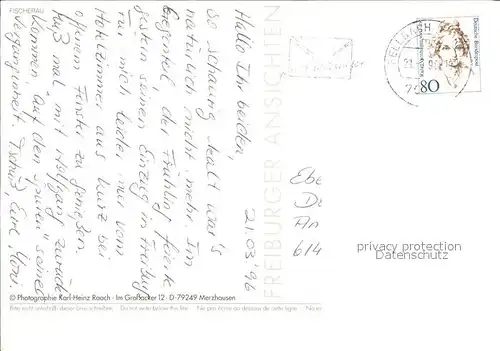 FISCHERAU
Hallo Ihr beiden,
so schaurig kalt war's
natürlich nicht mehr. Im
Gegenteil, der Frühling feierte
gestern seinen Einzug in Freiburg
für mich leider nur vom
Hotelzimmer aus kurz bei
offenem Fenster zu genießen.
Muß mal mit Wolfgang zurück
kommen "auf den Spuren" seiner
Vergangenheit. Tschüß, Eure
21.03.96
FREIBURGER ANSICHTEN
Deutsche Bundespost
80
Ebe
De
An
614
privacy protection
Dokumentenschutz
© Photographie Karl-Heinz Raach · Im Großacker 12 · D-79249 Merzhausen
Bitte nicht unterhalb dieser Linie schreiben. Do not write below this line. Ne pas écrire au dessous de cette ligne.